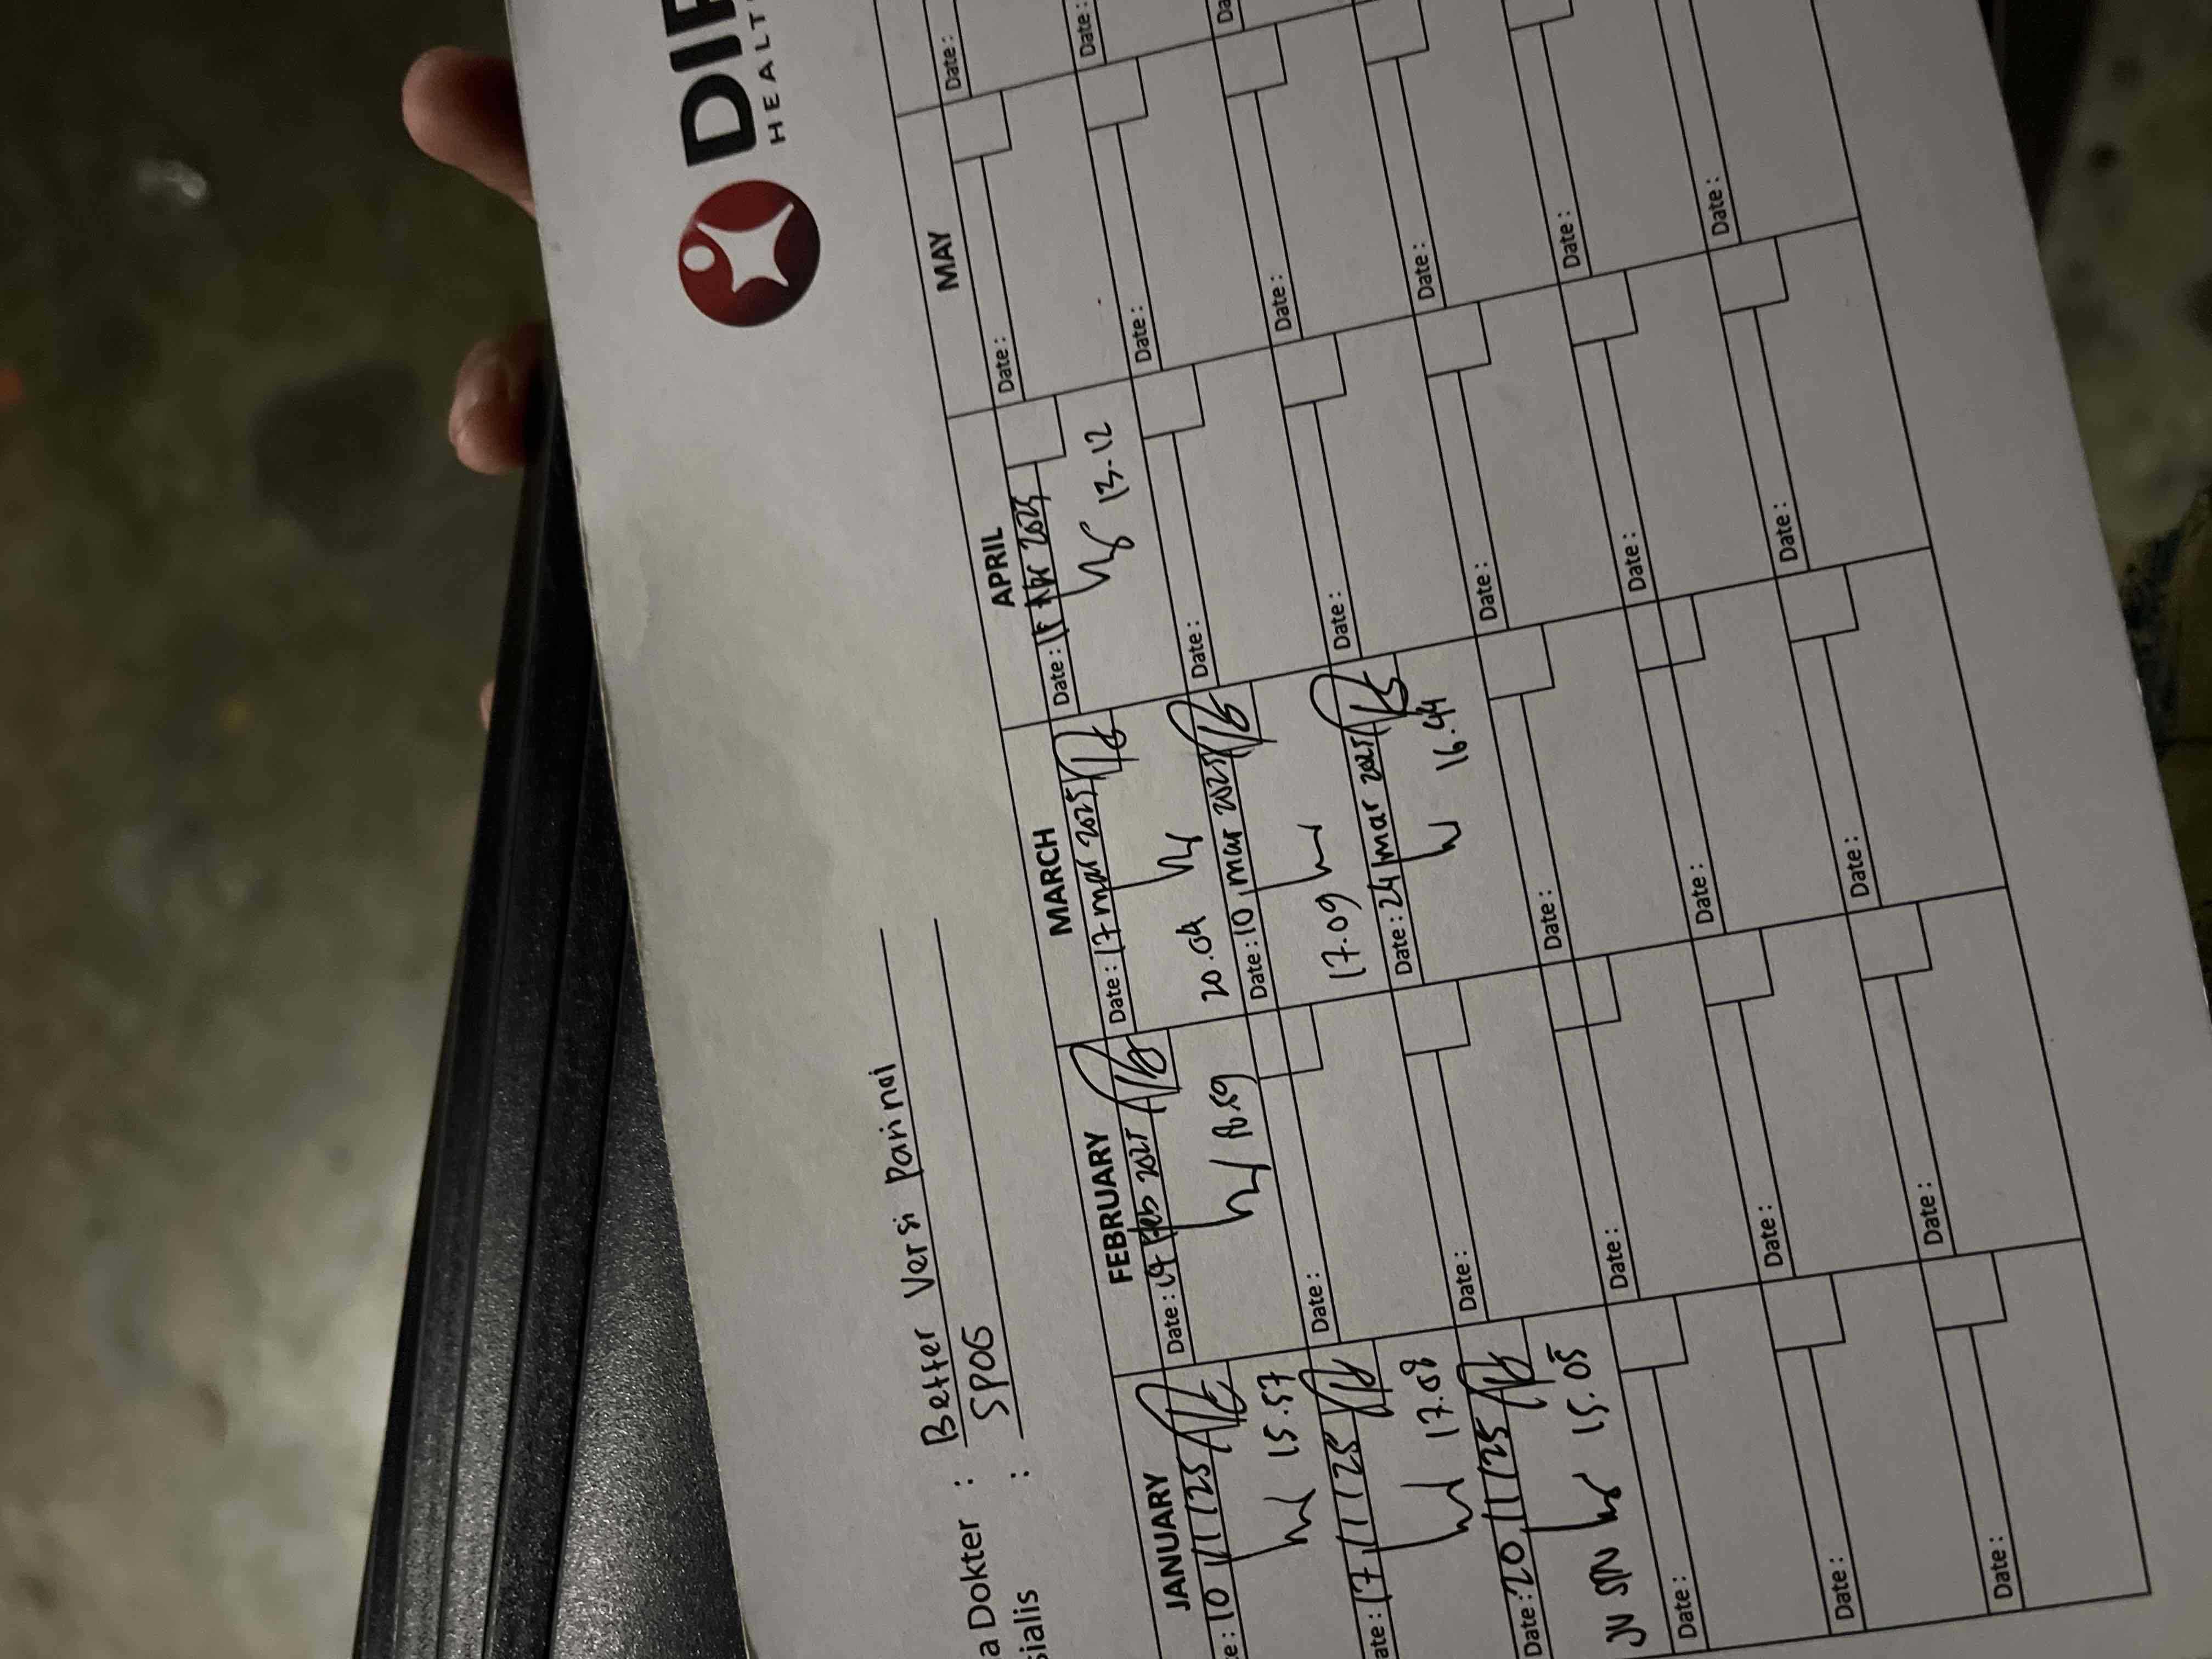 DIP
HEALT
a Dokter : Better Versi Parinai
sialis : SPOG
JANUARY FEBRUARY MARCH APRIL MAY
te : 10 / 1 / 25
15.57
ate : 17 / 1 / 25
17.08
Date : 20 / 1 / 25
15.05
JV SPN
Date :
Date :
Date :
Date : 19 Feb 2025
Date :
Date :
Date :
Date :
Date :
Date : 17 mar 2025
20.04
Date : 10, mar 2025
17.09
Date : 24 mar 2025
16.44
Date :
Date :
Date :
Date : Apr 2025
13.12
Date :
Date :
Date :
Date :
Date :
Date :
Date :
Date :
Date :
Date :
Date :
Date :
Date :
Da